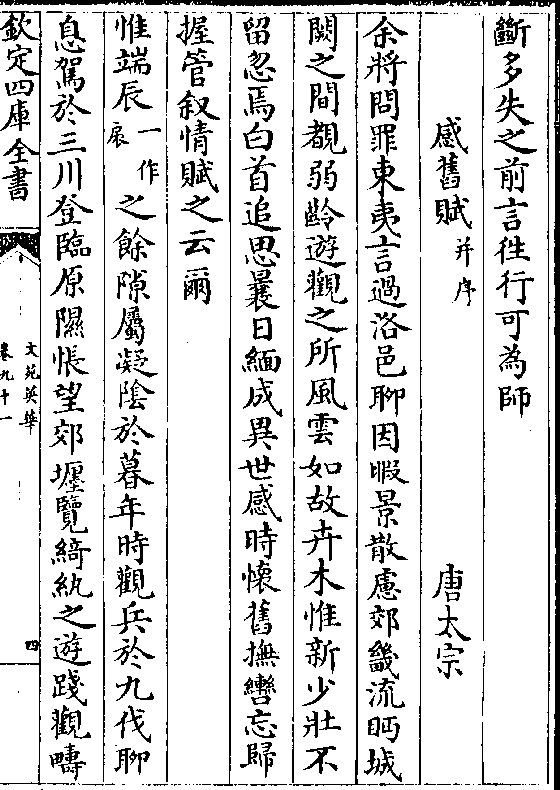 斷多失之前言徃行可為師
感舊賦并序 唐太宗
余將問罪東夷言過洛邑聊因暇景散慮郊畿流眄城
闕之間覩弱齡遊觀之所風雲如故卉木惟新少壯不
留忽焉白首追思曩日緬成異世感時懷舊撫轡忘歸
握管叙情賦之云爾
惟端辰一作扆之餘隙屬凝陰於暮年時觀兵於九伐聊
息駕於三川登臨原隰悵望郊壥覽綺紈之遊踐觀疇
欽定四庫全書
文苑英華
卷九十一
四